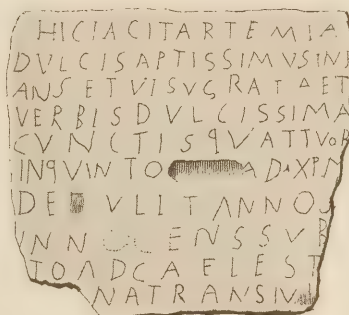 HICIACITARTEMIA
DVLCISAPTISSIMVSINF
ANSETVISVGRATAET
VERBISDVLCISSIMA
CVNCTISQVATTVOR
INQVINTO AD XPM
DE VLIT ANNOS
INN ENSSVB
ITOADCAELEST
NATRANSIV